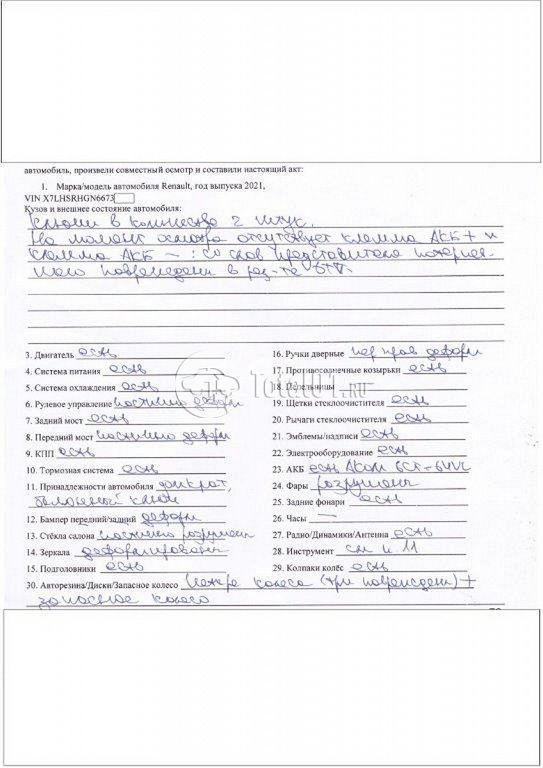 автомобиль, произвели совместный осмотр и составили настоящий акт:
1. Марка/модель автомобиля Renault, год выпуска 2021,
VIN X7LHSRHGN6673
Кузов и внешнее состояние автомобиля:
Ключи в количестве 2 штук.
На момент осмотра отсутствует клемма АКБ + и
клемма АКБ – : со слов представителя потерпев-
шего повреждены в рез-те ДТП
3. Двигатель есть
4. Система питания есть
5. Система охлаждения есть
6. Рулевое управление частично деформ
7. Задний мост есть
8. Передний мост частично деформ
9. КПП есть
10. Тормозная система есть
11. Принадлежности автомобиля домкрат,
баллонный ключ
12. Бампер передний/задний деформ
13. Стёкла салона частично разрушены
14. Зеркала деформированы
15. Подголовники есть
16. Ручки дверные пер прав деформ
17. Противосолнечные козырьки есть
18. Пепельницы —
19. Щетки стеклоочистителя есть
20. Рычаги стеклоочистителя есть
21. Эмблемы/надписи есть
22. Электрооборудование есть
23. АКБ есть Аком 6СТ-
24. Фары разрушены
25. Задние фонари есть
26. Часы —
27. Радио/Динамики/Антенна есть
28. Инструмент см п 11
29. Колпаки колёс есть
30. Авторезина/Диски/Запасное колесо четыре колеса (три повреждены) +
запасное колесо
Total01.ru